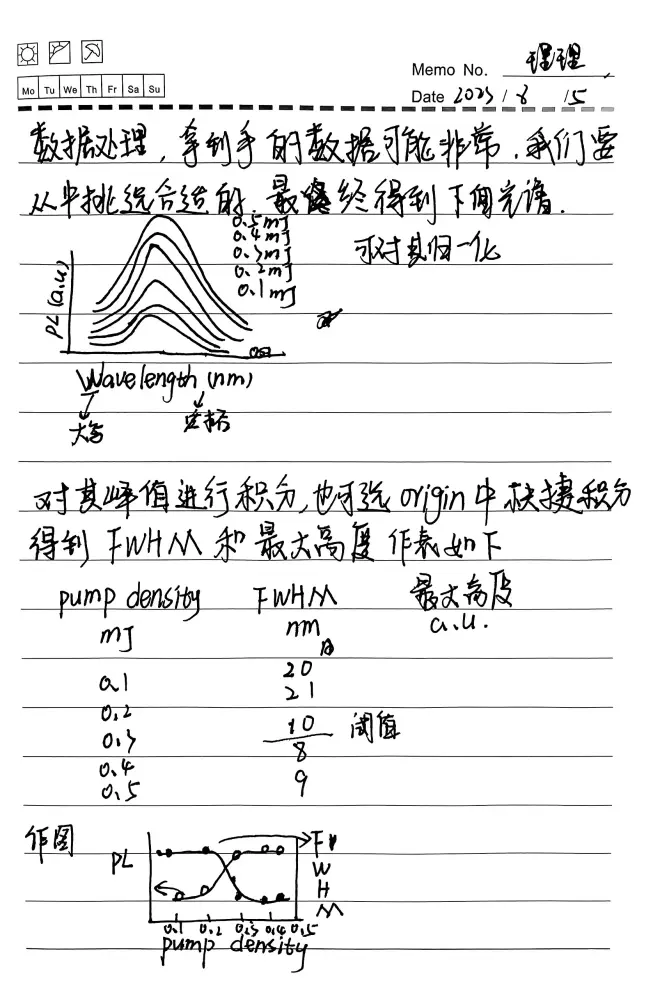 Mo Tu We Th Fr Sa Su
Memo No. 理理
Date 2023/8/15
数据处理,拿到手的数据可能非常,我们要
从中挑选合适的,最终得到下面光谱.
可对其归一化
0.5mJ
0.4mJ
0.3mJ
0.2mJ
0.1mJ
PL (a.u)
Wavelength (nm)
大写
空格
对其峰值进行积分,也可选origin中快捷积分
得到FWHM和最大高度作表如下
pump density FWHM 最大高度
mJ nm a.u.
0.1 20
0.2 21
0.3 10 阈值
0.4 8
0.5 9
作图
PL
FWHM
0.1 0.2 0.3 0.4 0.5
pump density